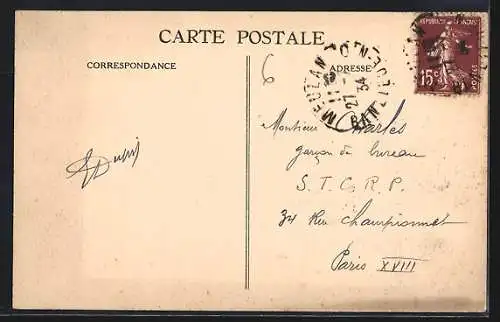 CARTE POSTALE
CORRESPONDANCE
ADRESSE
6
MEULAN
27
34
REPUBLIQUE FRANÇAISE
15c
POSTES
Monsieur Charles
garçon de bureau
S. T. C. R. P.
34 Rue Championnet
Paris XVIII